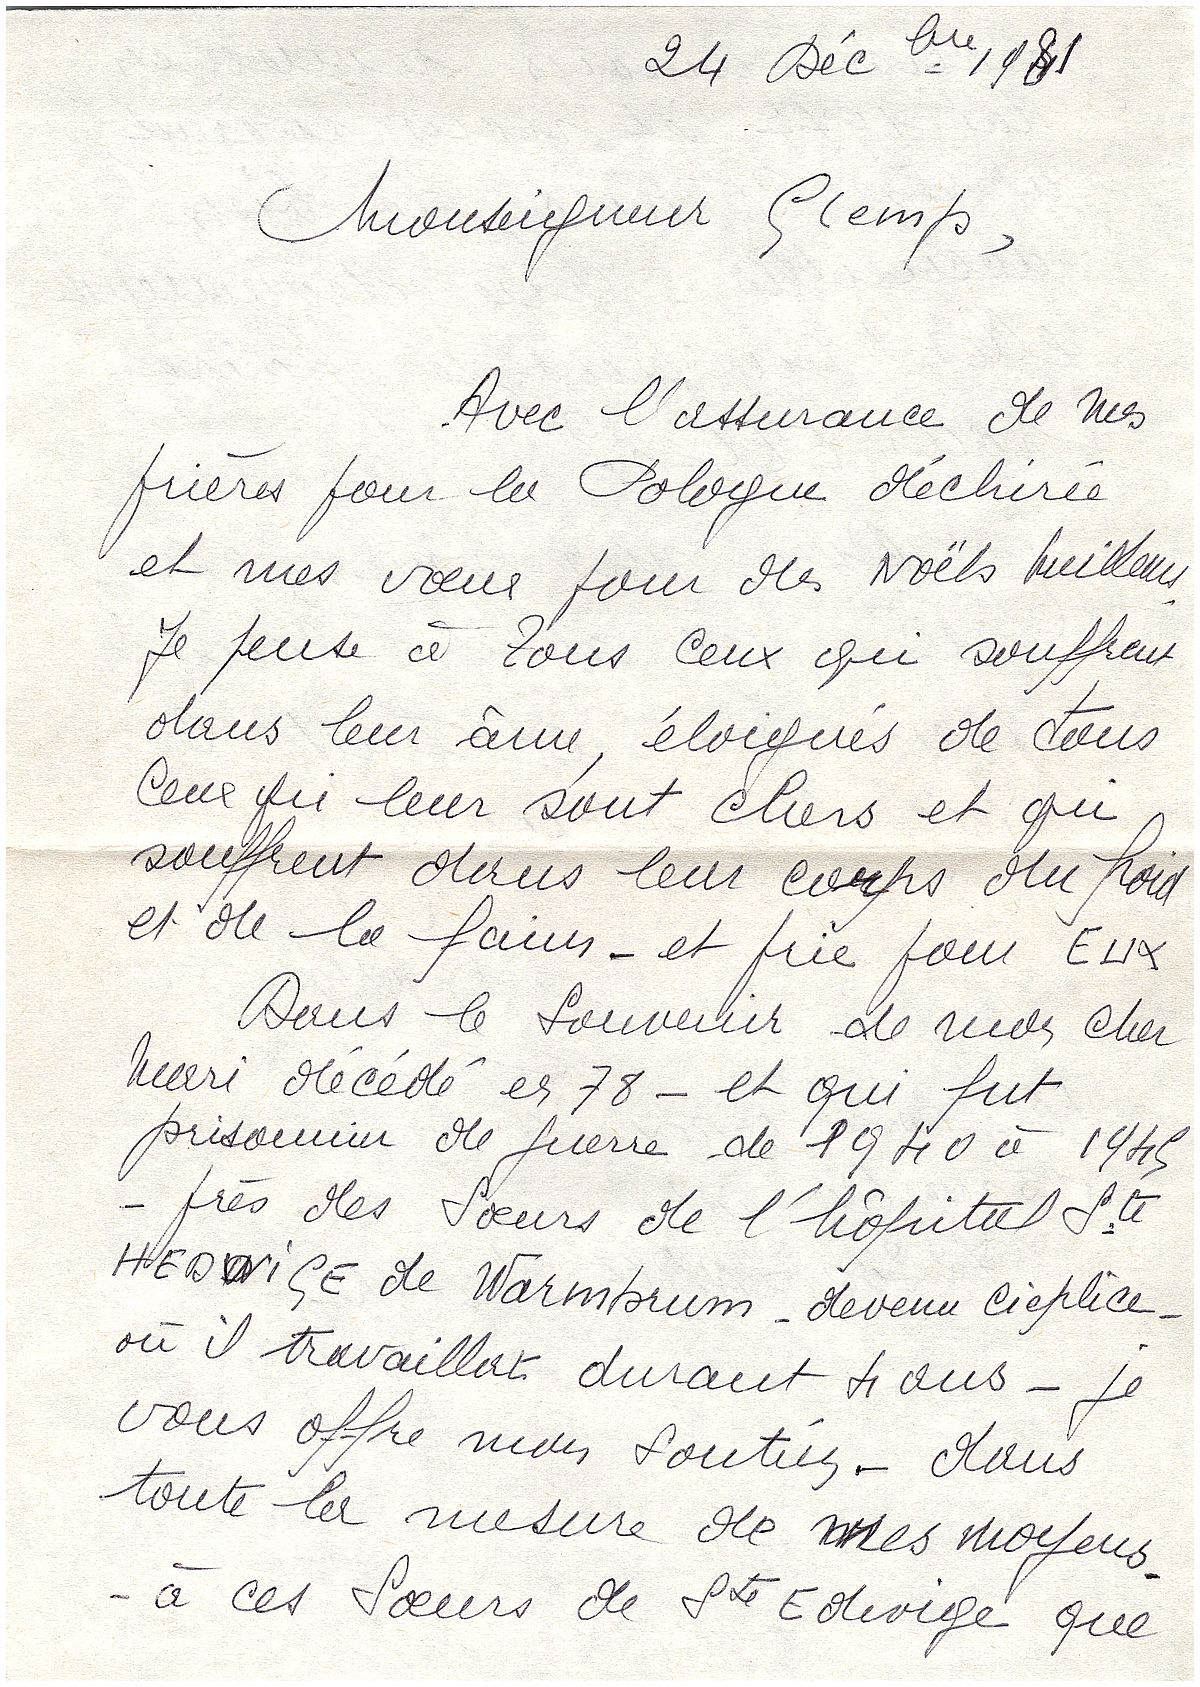 24 Déc bre 1981
Monseigneur Glemp,
Avec l'assurance de mes
prières pour la Pologne déchirée
et mes vœux pour des Noëls meilleurs.
Je pense à Tous ceux qui souffrent
dans leur âme, éloignés de tous
Ceux qui leur sont chers et qui
souffrent dans leur corps du froid
et de la faim - et prie pour EUX
Dans le Souvenir de mon cher
Mari décédé en 78 - et qui fut
prisonnier de guerre de 1940 à 1945
- près des Sœurs de l'hôpital Ste
HEDWiGE de Warmbrum - devenu Cieplice -
où il travaillat durant 4 ans - je
vous offre mon Soutien - dans
toute la mesure de mes moyens -
- à ces Sœurs de Ste Edwige que